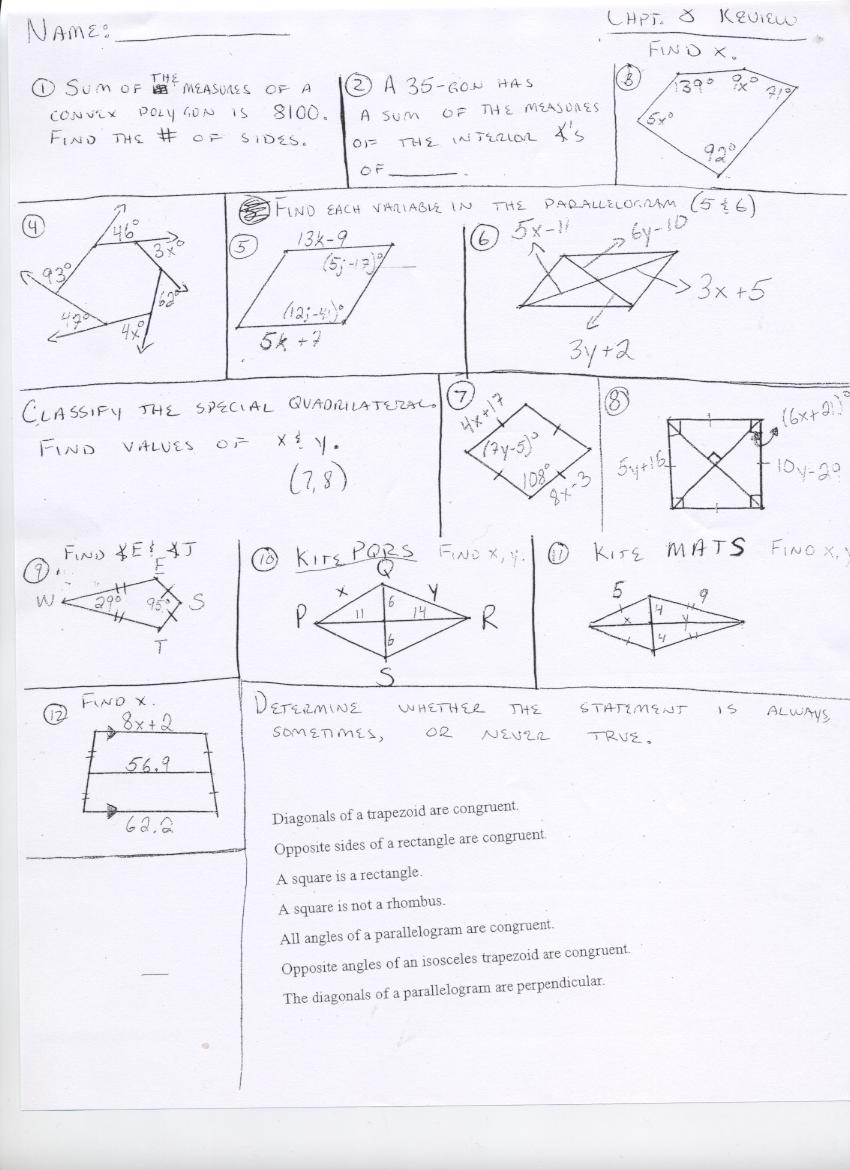 NAME:
CHPT. 8 REVIEW
FIND X.
① SUM OF THE MEASURES OF A
CONVEX POLYGON IS 8100.
FIND THE # OF SIDES.
② A 35-GON HAS
A SUM OF THE MEASURES
OF THE INTERIOR ∡'S
OF ______.
③
139° 9x° 71°
5x°
92°
④
46°
3x°
93°
62°
47° 4x°
FIND EACH VARIABLE IN THE PARALLELOGRAM (5 & 6)
⑤
13k-9
(5j-17)°
(12j-41)°
5k+7
⑥
5x-11
6y-10
3x+5
3y+2
CLASSIFY THE SPECIAL QUADRILATERAL.
FIND VALUES OF X & Y.
(7,8)
⑦
4x+17
(7y-5)°
108°
8x-3
⑧
(6x+21)°
5y+16
10y-29
⑨ FIND ∡E & ∡T
E
W 29° 95° S
T
⑩ KITE PQRS FIND X, Y.
Q
x y
6
P 11 14 R
6
S
⑪ KITE MATS FIND X, Y
5 9
4
x y
4
⑫ FIND X.
8x+2
56.9
62.2
DETERMINE WHETHER THE STATEMENT IS ALWAYS,
SOMETIMES, OR NEVER TRUE.
Diagonals of a trapezoid are congruent.
Opposite sides of a rectangle are congruent.
A square is a rectangle.
A square is not a rhombus.
All angles of a parallelogram are congruent.
Opposite angles of an isosceles trapezoid are congruent.
The diagonals of a parallelogram are perpendicular.